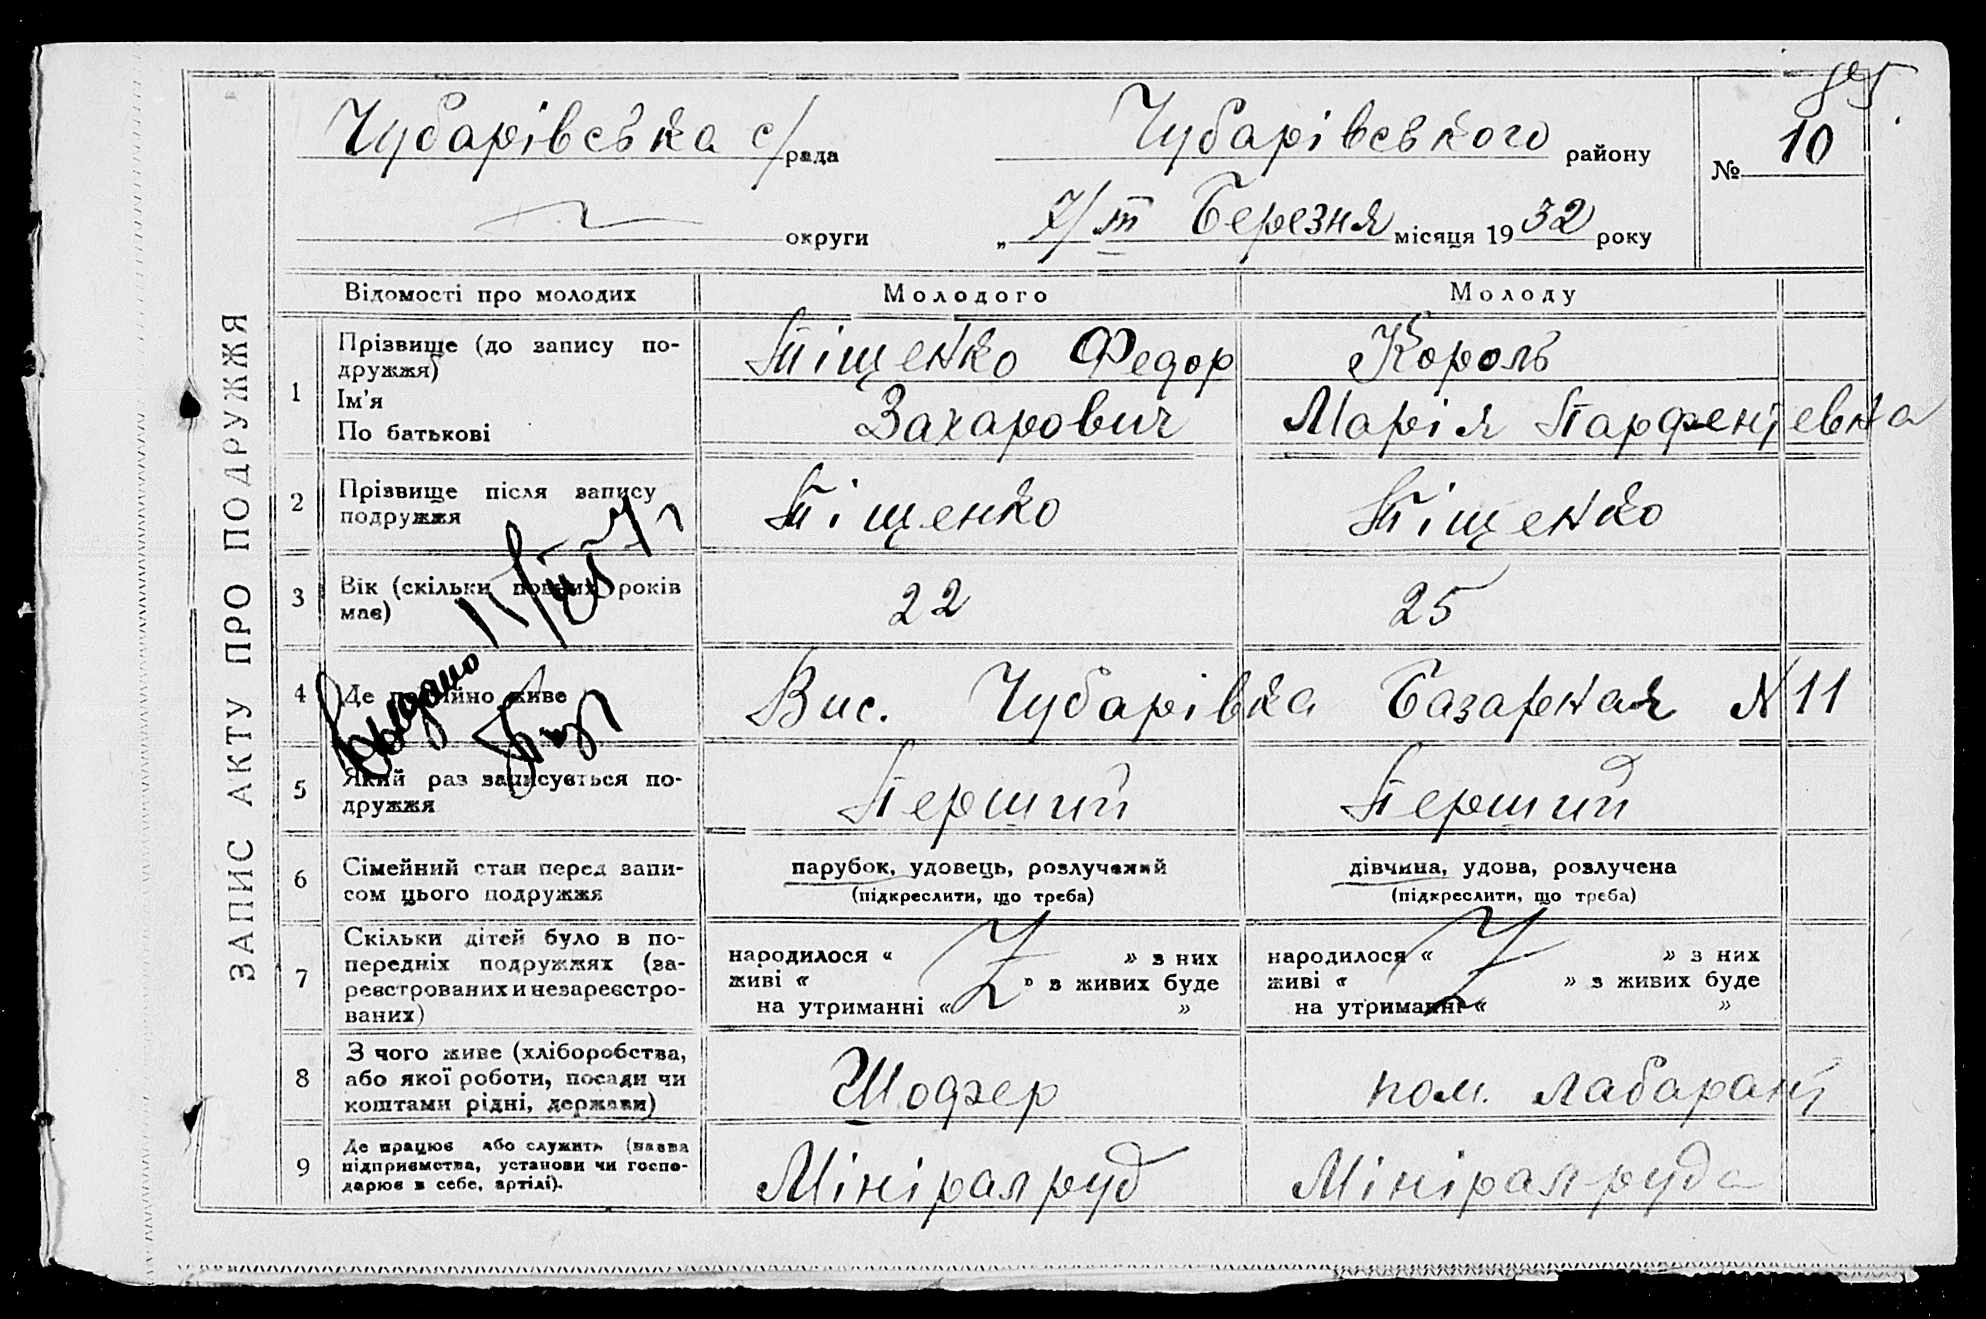 85
Чубарівська с/рада Чубарівського району № 10
округи „ 7/III Березня місяця 1932 року
ЗАПИС АКТУ ПРО ПОДРУЖЖЯ
Відомості про молодих Молодого Молоду
1 Прізвище (до запису по-
дружжя)
Ім'я
По батькові
Тіщенко Федор
Захарович
Король
Марія Парфентевна
2 Прізвище після запису
подружжя
Тіщенко Тіщенко
3 Вік (скільки повних років
має)
22 25
Выдано
4 Де постійно живе Вис. Чубарівка Базарная N 11
5 Який раз записується по-
дружжя
Перший Перший
6 Сімейний стан перед запи-
сом цього подружжя
парубок, удовець, розлучений
(підкреслити, що треба)
дівчина, удова, розлучена
(підкреслити, що треба)
7 Скільки дітей було в по-
передніх подружжях (за-
реєстрованих и незареєстро-
ваних)
народилося « » з них
живі « » з живих буде
на утриманні « »
народилося « » з них
живі « » з живих буде
на утриманні « »
8 З чого живе (хліборобства,
або якої роботи, посади чи
коштами рідні, держави)
Шофер пом. лабарант
9 Де працює або служить (назва
підприємства, установи чи госпо-
дарює в себе, артілі).
Мініралруд Мініралруда